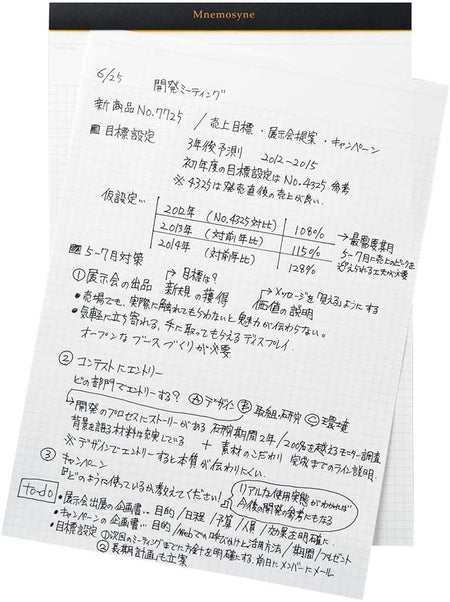 Mnemosyne
6/25 開発ミーティング
新商品No.7725 / 売上目標・展示会提案・キャンペーン
目標設定 3年後予測 2012-2015
初年度の目標設定はNo.4325 参考
※4325は発売直後の売上が良い。
仮設定…
2012年 (No.4325対比) 108%
2013年 (対前年比) 115%
2014年 (対前年比) 128%
→最需要期
5-7月に売上のピークを
迎えられる工夫が必要
5-7月対策
①展示会の出品
→目標は?
新規の獲得
→メッセージを「見える」ようにする
価値の説明
•売場でも、実際に触れてもらわないと魅力が伝わらない。
•気軽に立ち寄れる、手に取ってもらえるディスプレイ
オープンなブースづくりが必要
②コンテストにエントリー
どの部門でエントリーする? Ⓐデザイン Ⓑ取組・研究 Ⓒ環境
→開発のプロセスにストーリーがある 研究期間2年/200名を越えるモニター調査
背景を語る材料は充実している + 素材のこだわり 完成までのライン説明.
※デザインでエントリーすると本質が伝わりにくい.
③キャンペーン
「どのように使っているか教えてください!」
リアルな使用実態がわかれば
今後の開発の参考にもなる
to-do
•展示会出展の企画書… 目的/日程/予算/人員/効果を明確に.
•キャンペーンの企画書… 目的/Webでの呼びかけと活用方法/期間/プレゼント
•目標設定 ①次回のミーティングまでに方針を明確にする.前日にメンバーにメール
②長期計画も立案